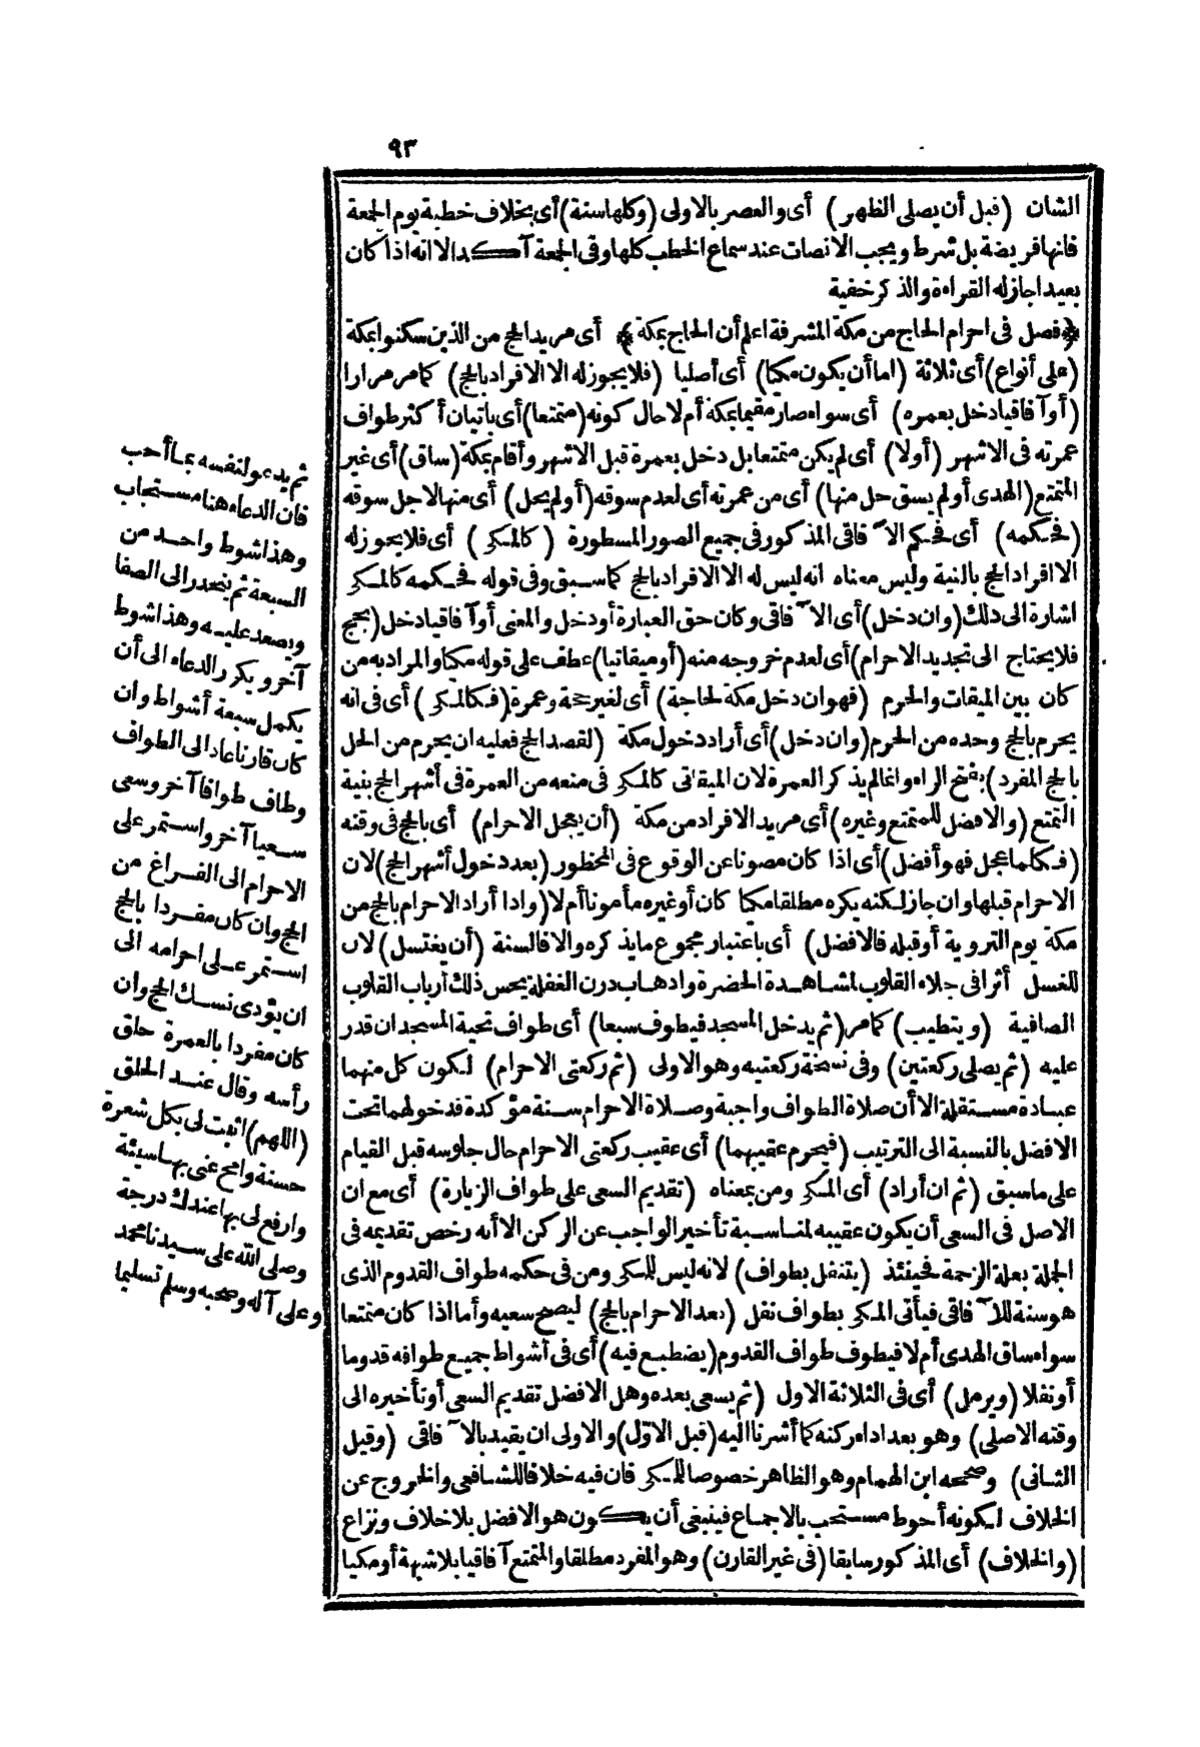 ٩٣
الشان (قبل أن يصلى الظهر) أى والعصر بالاولى (وكلها سنة) أى بخلاف خطبة يوم الجمعة
فانها فريضة بل شرط ويجب الانصات عند سماع الخطب كلها وفى الجمعة آكد الا انه اذا كان
بعيدا جاز له القراءة والذكر خفية
﴿فصل فى احرام الحاج من مكة المشرفة اعلم أن الحاج بمكة﴾ أى مريد الحج من الذين سكنوا بمكة
(على أنواع) أى ثلاثة (اما أن يكون مكيا) أى أصليا (فلا يجوز له الا الافراد بالحج) كما مر مرارا
(أو آفاقيا دخل بعمره) أى سواء صار مقيما بمكة أم لا حال كونه (متمتعا) أى باتيان أكثر طواف
عمرته فى الاشهر (أولا) أى لم يكن متمتعا بل دخل بعمرة قبل الاشهر وأقام بمكة (ساق) أى غير
المتمتع (الهدى أو لم يسق حل منها) أى من عمرته أى لعدم سوقه (أو لم يحل) أى منها لاجل سوقه
(فحكمه) أى فحكم الآفاقى المذكور فى جميع الصور المسطورة (كالمكى) أى فلا يجوز له
الا افراد الحج بالنية وليس معناه انه ليس له الا الافراد بالحج كما سبق وفى قوله فحكمه كالمكى
اشارة الى ذلك (وان دخل) أى الآفاقى وكان حق العبارة أو دخل والمعنى أو آفاقيا دخل (بحج
فلا يحتاج الى تجديد الاحرام) أى لعدم خروجه منه (أو ميقاتيا) عطف على قوله مكيا والمراد به من
كان بين الميقات والحرم (فهو ان دخل مكة لحاجة) أى لغير حجة وعمرة (فكالمكى) أى فى انه
يحرم بالحج وحده من الحرم (وان دخل) أى أراد دخول مكة (لقصد الحج فعليه ان يحرم من الحل
بالحج المفرد) بفتح الراء وانما لم يذكر العمرة لان الميقاتى كالمكى فى منعه من العمرة فى أشهر الحج بنية
التمتع (والافضل للمتمتع وغيره) أى مريد الافراد من مكة (أن يعجل الاحرام) أى بالحج فى وقته
(فكلما عجل فهو أفضل) أى اذا كان مصونا عن الوقوع فى المحظور (بعد دخول أشهر الحج) لان
الاحرام قبلها وان جاز لكنه يكره مطلقا مكيا كان أو غيره مأمونا أم لا (واذا أراد الاحرام بالحج من
مكة يوم التروية أو قبله فالافضل) أى باعتبار مجموع ما يذكره والا فالسنة (أن يغتسل) لان
للغسل أثرا فى جلاء القلوب لمشاهدة الحضرة واذهاب درن الغفلة يحس ذلك أرباب القلوب
الصافية (ويتطيب) كما مر (ثم يدخل المسجد فيطوف سبعا) أى طواف تحية المسجد ان قدر
عليه (ثم يصلى ركعتين) وفى نسخة ركعتيه وهو الاولى (ثم ركعتى الاحرام) لكون كل منهما
عبادة مستقلة الا أن صلاة الطواف واجبة وصلاة الاحرام سنة مؤكدة فدخولهما تحت
الافضل بالنسبة الى الترتيب (فيحرم عقيبهما) أى عقيب ركعتى الاحرام حال جلوسه قبل القيام
على ما سبق (ثم ان أراد) أى المكى ومن بمعناه (تقديم السعى على طواف الزيارة) أى مع ان
الاصل فى السعى أن يكون عقيبه لمناسبة تأخير الواجب عن الركن الا أنه رخص تقديمه فى
الجملة بعلة الزحمة فحينئذ (يتنفل بطواف) لانه ليس للمكى ومن فى حكمه طواف القدوم الذى
هو سنة للآفاقى فيأتى المكى بطواف نفل (بعد الاحرام بالحج) ليصح سعيه وأما اذا كان متمتعا
سواء ساق الهدى أم لا فيطوف طواف القدوم (يضطبع فيه) أى فى أشواط جميع طوافه قدوما
أو نفلا (ويرمل) أى فى الثلاثة الاول (ثم يسعى بعده وهل الافضل تقديم السعى أو تأخيره الى
وقته الاصلى) وهو بعد اداء ركنه كما أشرنا اليه (قيل الاوّل) والاولى ان يقيد بالآفاقى (وقيل
الثانى) وصححه ابن الهمام وهو الظاهر خصوصا للمكى فان فيه خلافا للشافعى والخروج عن
الخلاف لكونه أحوط مستحب بالاجماع فينبغى أن يكون هو الافضل بلا خلاف ونزاع
(والخلاف) أى المذكور سابقا (فى غير القارن) وهو المفرد مطلقا والمتمتع آفاقيا بلا شبهة أو مكيا
ثم يدعو لنفسه بما أحب
فان الدعاء هنا مستجاب
وهذا شوط واحد من
السبعة ثم ينحدر الى الصفا
ويصعد عليه وهذا شوط
آخر ويكرر الدعاء الى أن
يكمل سبعة أشواط وان
كان قارنا عاد الى الطواف
وطاف طوافا آخر وسعى
سعيا آخر واستمر على
الاحرام الى الفراغ من
الحج وان كان مفردا بالحج
استمر على احرامه الى
ان يؤدى نسك الحج وان
كان مفردا بالعمرة حلق
رأسه وقال عند الحلق
(اللهم) اثبت لى بكل شعرة
حسنة وامح عنى بها سيئة
وارفع لى بها عندك درجة
وصلى الله على سيدنا محمد
وعلى آله وصحبه وسلم تسليما